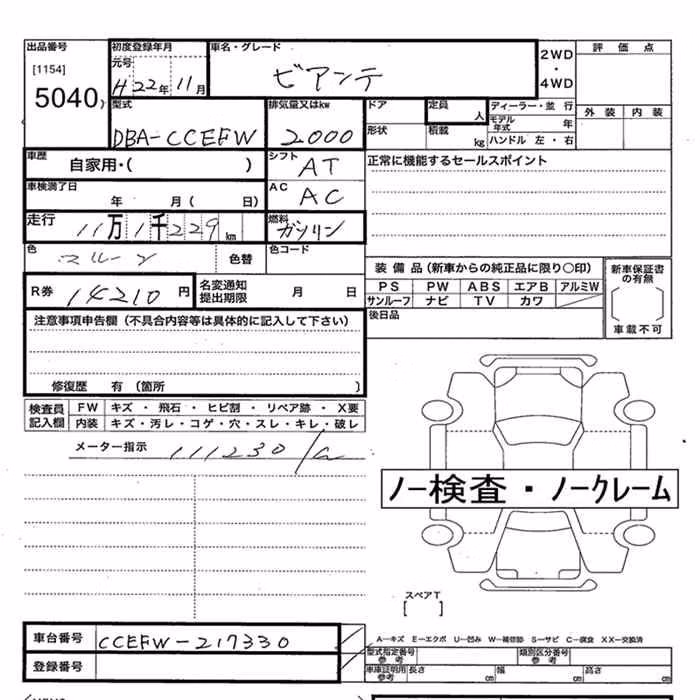 出品番号
[1154]
5040
初度登録年月
元号
H.22年11月
車名・グレード
ビアンテ
2WD
・
4WD
評価点
外装 内装
型式
DBA-CCEFW
排気量又はkw
2000
ドア
形状
定員 人
積載 kg
ディーラー・並 行
モデル年式 年
ハンドル 左・右
車歴
自家用・( )
シフト
AT
正常に機能するセールスポイント
車検満了日
年 月( 日)
AC
AC
走行
11万1千229km
燃料
ガソリン
色
ブルーン
色替
色コード
装備品(新車からの純正品に限り○印)
PS PW ABS エアB アルミW
サンルーフ ナビ TV カワ
新車保証書の有無
車載不可
R券
14210円
名変通知
提出期限
月 日
後日品
注意事項申告欄(不具合内容等は具体的に記入して下さい)
修復歴 有(箇所 )
検査員
記入欄
FW キズ・飛石・ヒビ割・リペア跡・X要
内装 キズ・汚レ・コゲ・穴・スレ・キレ・破レ
メーター指示
111230
ノー検査・ノークレーム
スペアT
[ ]
車台番号
CCEFW-217330
登録番号
A-キズ E-エクボ U-凹み W-補修跡 S-サビ C-腐食 XX-交換済
型式指定番号
参考
類別区分番号
参考
車庫証明用
参考
長さ cm
幅 cm
高さ cm